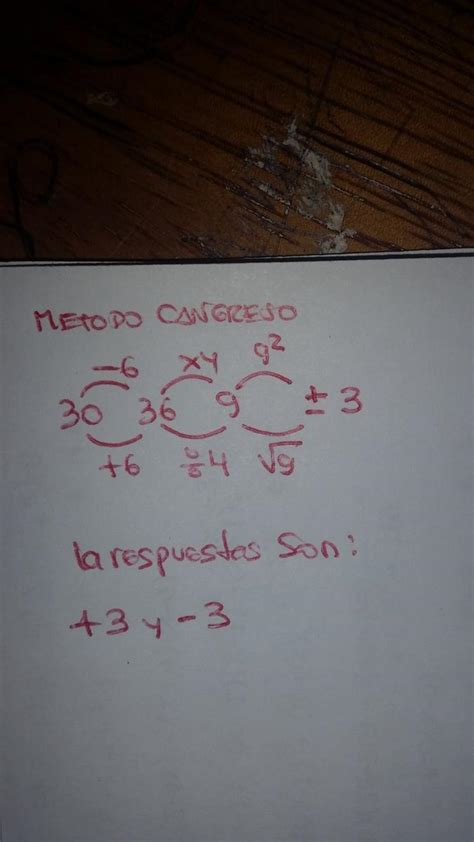 METODO CANGREJO
-6 x4 9²
30 36 9 ± 3
+6 ÷4 √9
la respuestas son:
+3 y -3